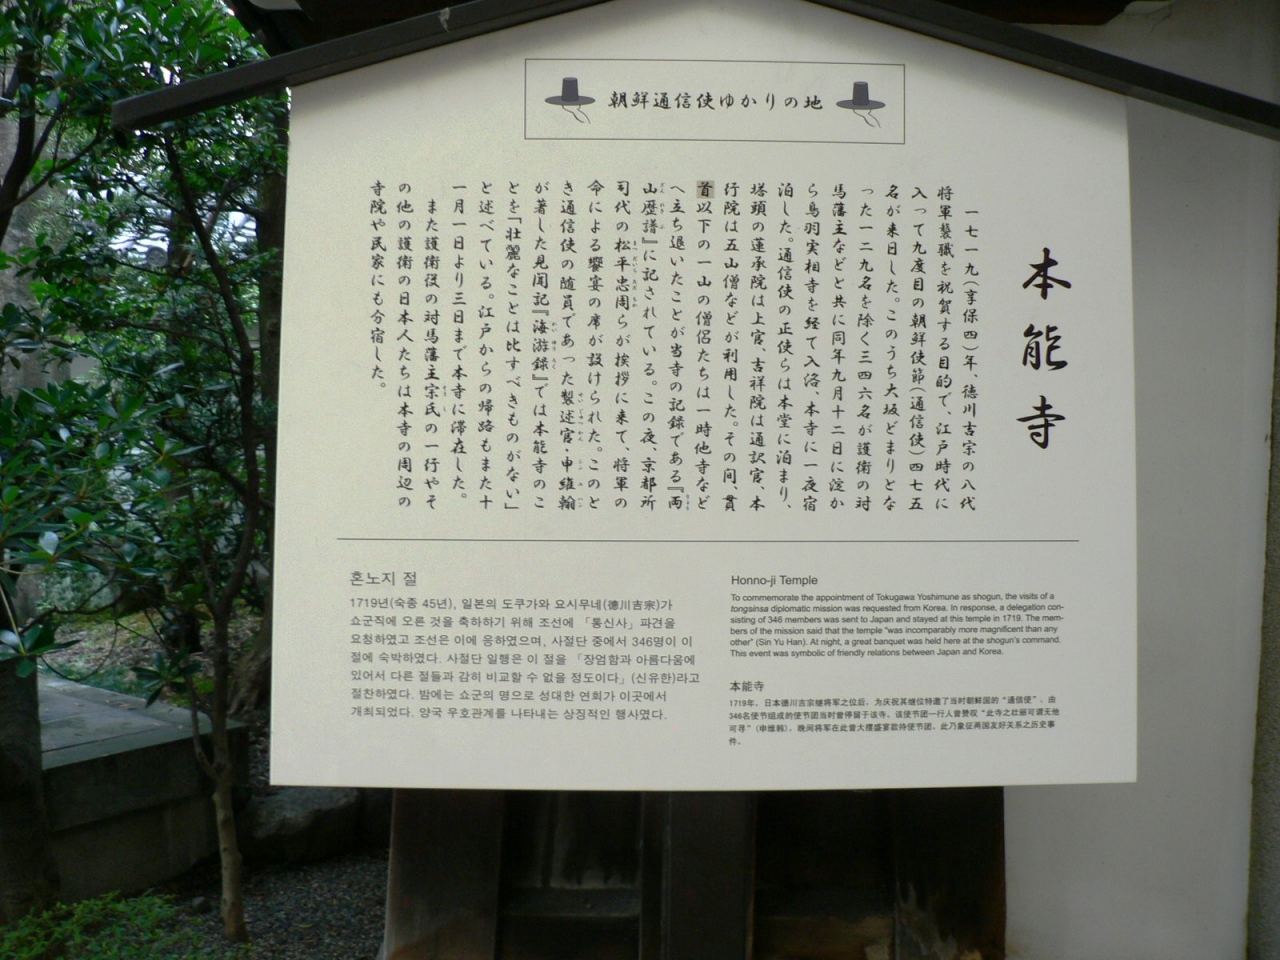 朝鮮通信使ゆかりの地
本能寺
一七一九(享保四)年、徳川吉宗の八代
将軍襲職を祝賀する目的で、江戸時代に
入って九度目の朝鮮使節(通信使)四七五
名が来日した。このうち大坂どまりとな
った一二九名を除く三四六名が護衛の対
馬藩主などと共に同年九月十二日に淀か
ら鳥羽実相寺を経て入洛、本寺に一夜宿
泊した。通信使の正使らは本堂に泊まり、
塔頭の蓮承院は上官、吉祥院は通訳官、本
行院は五山僧などが利用した。その間、貫
首以下の一山の僧侶たちは一時他寺など
へ立ち退いたことが当寺の記録である『両
山歴譜』に記されている。この夜、京都所
司代の松平忠周らが挨拶に来て、将軍の
命による饗宴の席が設けられた。このと
き通信使の随員であった製述官・申維翰
が著した見聞記『海游録』では本能寺のこ
とを「壮麗なことは比すべきものがない」
と述べている。江戸からの帰路もまた十
一月一日より三日まで本寺に滞在した。
また護衛役の対馬藩主宗氏の一行やそ
の他の護衛の日本人たちは本寺の周辺の
寺院や民家にも分宿した。
혼노지 절
1719년(숙종 45년), 일본의 도쿠가와 요시무네(德川吉宗)가
쇼군직에 오른 것을 축하하기 위해 조선에 「통신사」파견을
요청하였고 조선은 이에 응하였으며, 사절단 중에서 346명이 이
절에 숙박하였다. 사절단 일행은 이 절을 「장엄함과 아름다움에
있어서 다른 절들과 감히 비교할 수 없을 정도이다」(신유한)라고
절찬하였다. 밤에는 쇼군의 명으로 성대한 연회가 이곳에서
개최되었다. 양국 우호관계를 나타내는 상징적인 행사였다.
Honno-ji Temple
To commemorate the appointment of Tokugawa Yoshimune as shogun, the visits of a
tongsinsa diplomatic mission was requested from Korea. In response, a delegation con-
sisting of 346 members was sent to Japan and stayed at this temple in 1719. The mem-
bers of the mission said that the temple "was incomparably more magnificent than any
other" (Sin Yu Han). At night, a great banquet was held here at the shogun's command.
This event was symbolic of friendly relations between Japan and Korea.
本能寺
1719年，日本德川吉宗继将军之位后，为庆祝其继位特邀了当时朝鲜国的“通信使”。由
346名使节组成的使节团当时曾停留于该寺。该使节团一行人曾赞叹“此寺之壮丽可谓无他
可寻”（申维韩）。晚间将军在此曾大摆盛宴款待使节团。此乃象征两国友好关系之历史事
件。